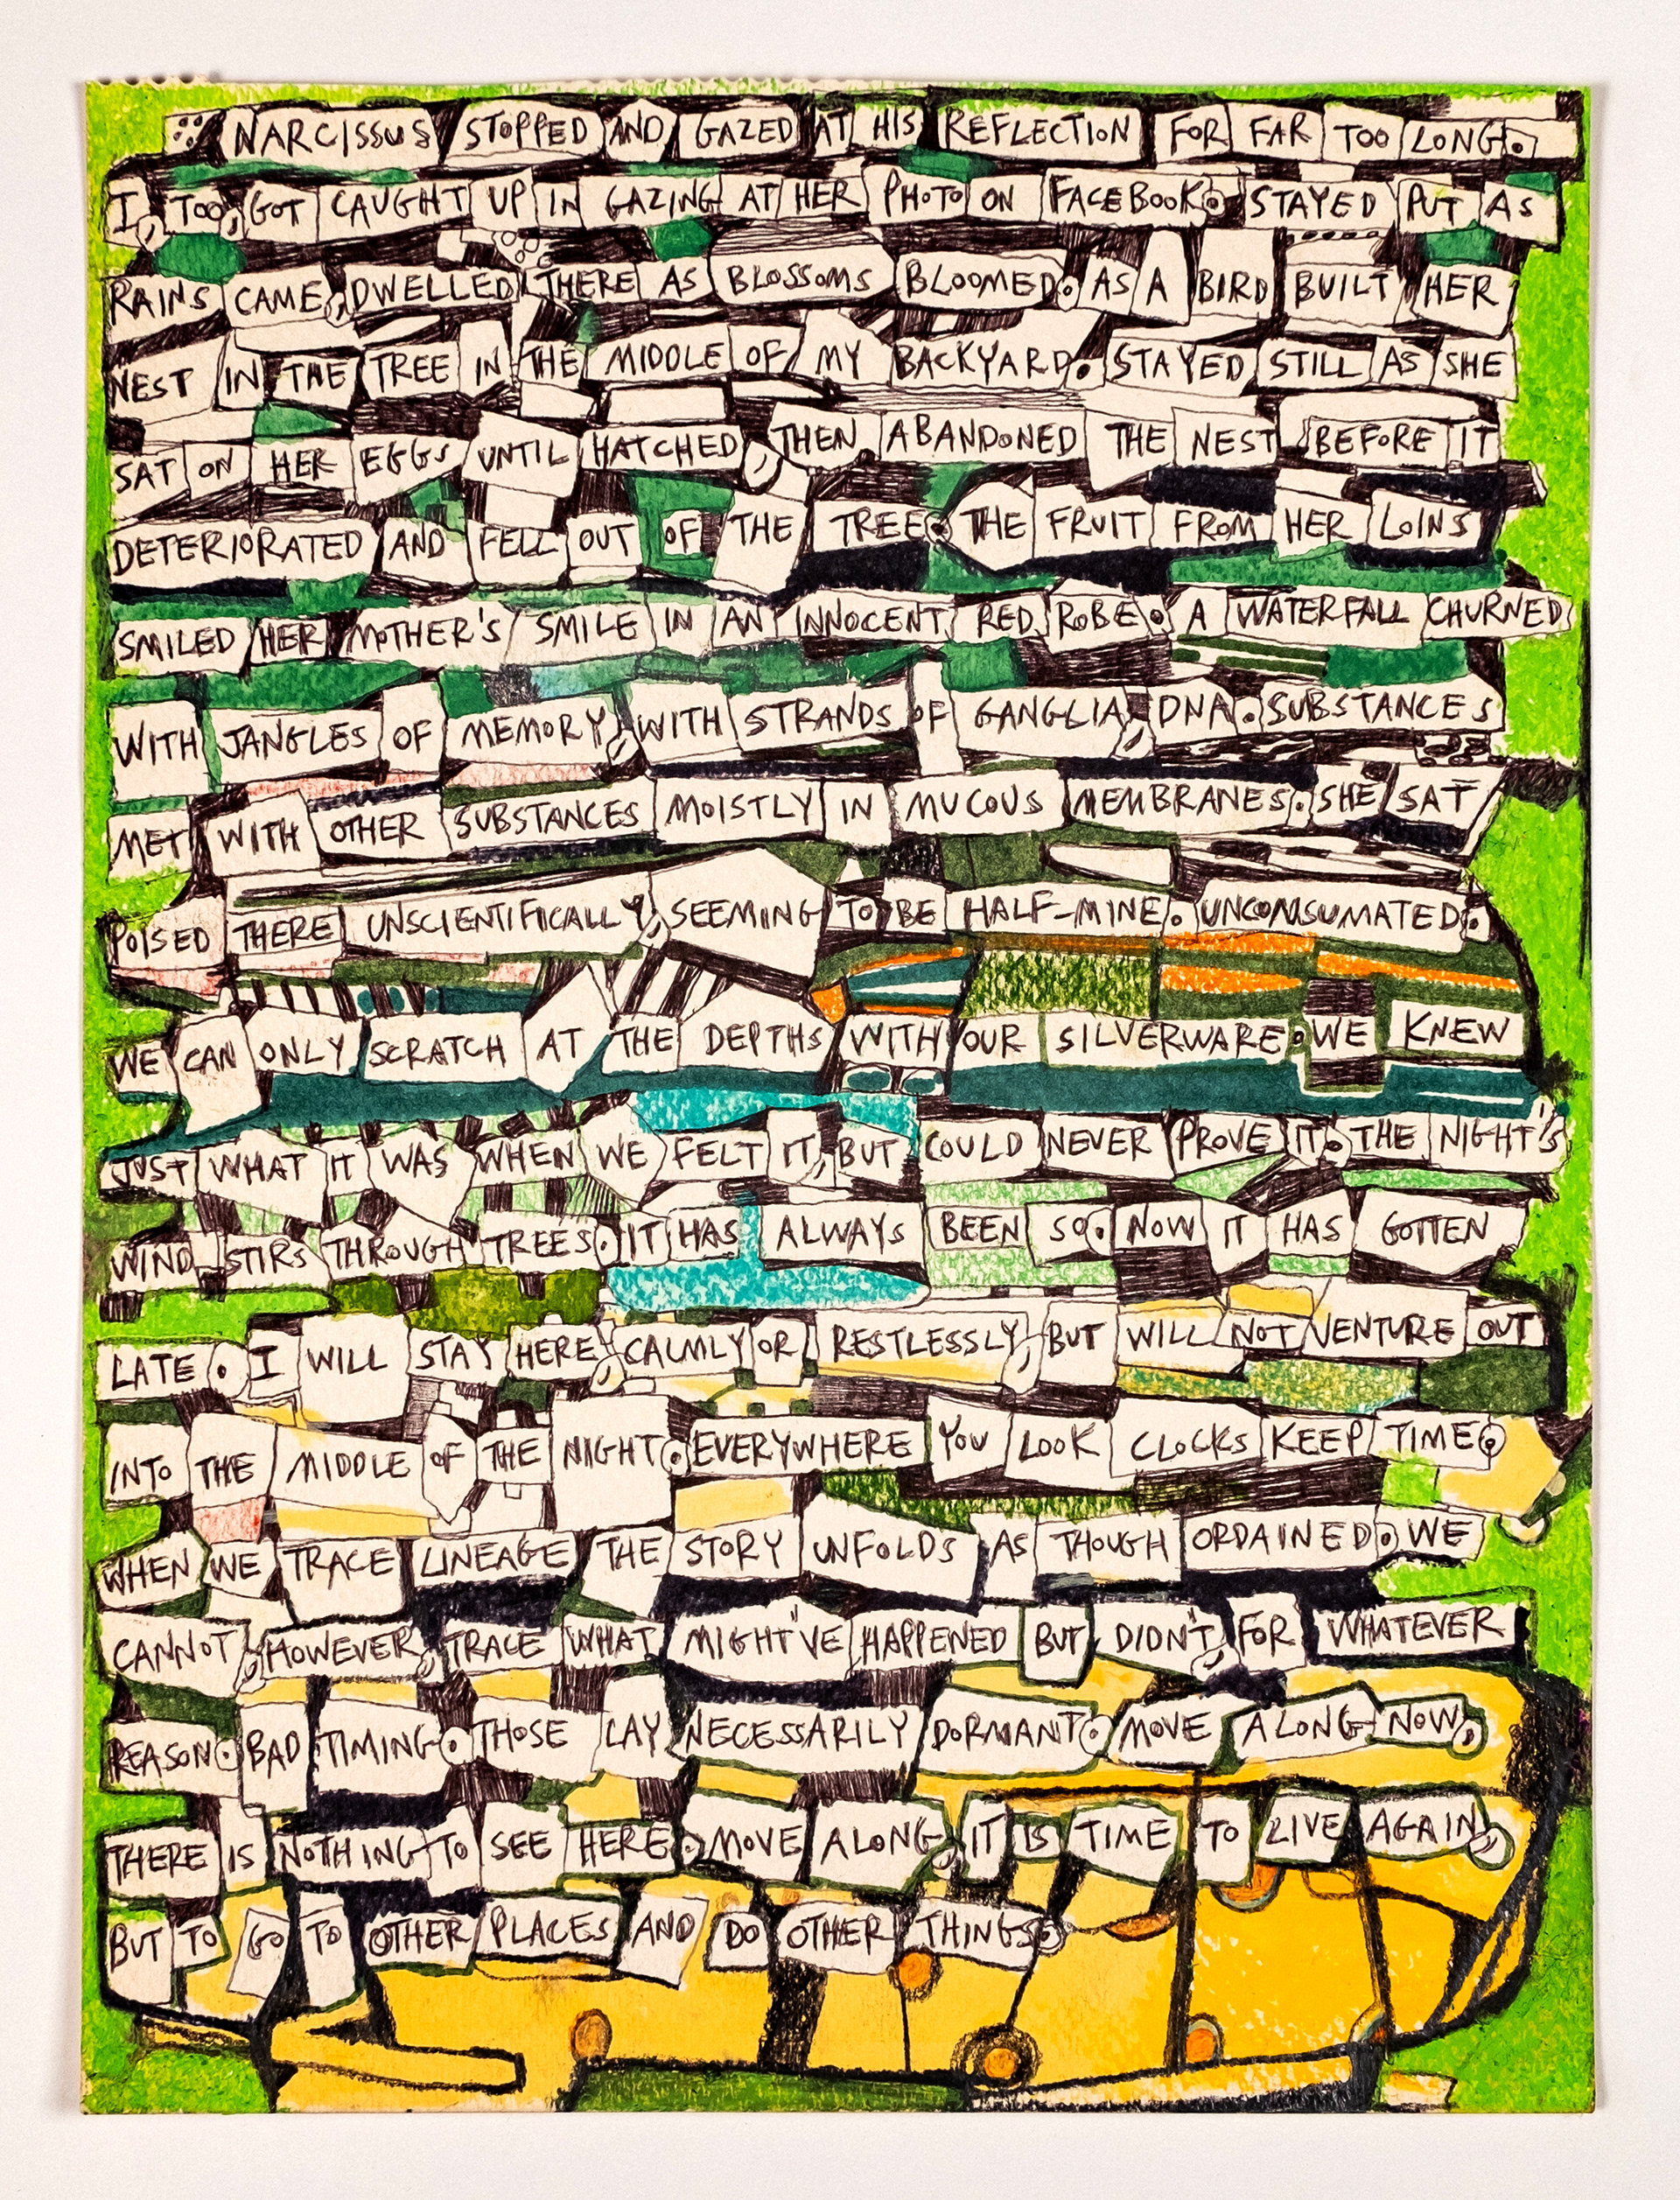 NARCISSUS STOPPED AND GAZED AT HIS REFLECTION FOR FAR TOO LONG.
I, TOO, GOT CAUGHT UP IN GAZING AT HER PHOTO ON FACEBOOK. STAYED PUT AS
RAINS CAME, DWELLED THERE AS BLOSSOMS BLOOMED. AS A BIRD BUILT HER
NEST IN THE TREE IN THE MIDDLE OF MY BACKYARD. STAYED STILL AS SHE
SAT ON HER EGGS UNTIL HATCHED, THEN ABANDONED THE NEST BEFORE IT
DETERIORATED AND FELL OUT OF THE TREE. THE FRUIT FROM HER LOINS
SMILED HER MOTHER'S SMILE IN AN INNOCENT RED ROBE. A WATERFALL CHURNED
WITH JANGLES OF MEMORY, WITH STRANDS OF GANGLIA, DNA. SUBSTANCES
MET WITH OTHER SUBSTANCES MOISTLY IN MUCOUS MEMBRANES. SHE SAT
POISED THERE UNSCIENTIFICALLY, SEEMING TO BE HALF-MINE. UNCONSUMATED.
WE CAN ONLY SCRATCH AT THE DEPTHS WITH OUR SILVERWARE. WE KNEW
JUST WHAT IT WAS WHEN WE FELT IT, BUT COULD NEVER PROVE IT. THE NIGHT'S
WIND STIRS THROUGH TREES. IT HAS ALWAYS BEEN SO. NOW IT HAS GOTTEN
LATE. I WILL STAY HERE, CALMLY OR RESTLESSLY, BUT WILL NOT VENTURE OUT
INTO THE MIDDLE OF THE NIGHT. EVERYWHERE YOU LOOK CLOCKS KEEP TIME.
WHEN WE TRACE LINEAGE THE STORY UNFOLDS AS THOUGH ORDAINED. WE
CANNOT, HOWEVER, TRACE WHAT MIGHT'VE HAPPENED BUT DIDN'T, FOR WHATEVER
REASON. BAD TIMING. THOSE LAY NECESSARILY DORMANT. MOVE ALONG NOW.
THERE IS NOTHING TO SEE HERE. MOVE ALONG, IT IS TIME TO LIVE AGAIN,
BUT TO GO TO OTHER PLACES AND DO OTHER THINGS.